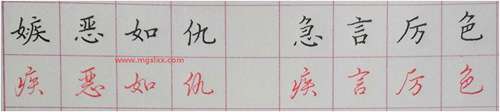 嫉恶如仇 急言厉色
疾恶如仇 疾言厉色
www.mgslxx.com